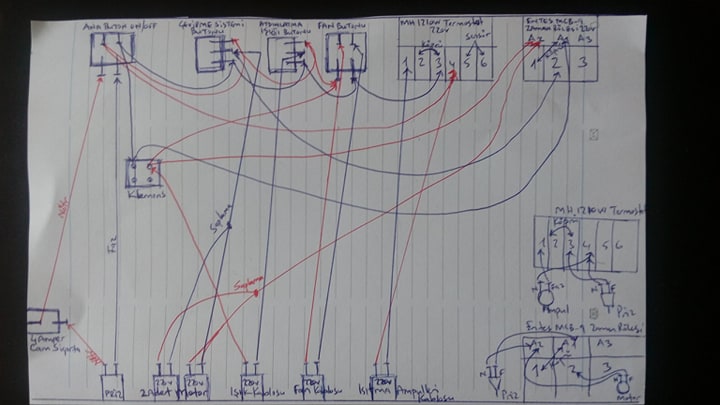 ANA BUTON ON/OFF
ÇEVİRME SİSTEMİ
BUTONU
AYDINLATMA
IŞIĞI Butonu
FAN BUTONU
MH 1210W Termostat
220V
Köprü
Sensör
1 2 3 4 5 6
Entes MCB-9
Zaman Rölesi 220V
A2 A1 A3
1 2 3
Klemens
Faz
Şaplama
Şaplama
4 Amper
Cam Sigorta
PRİZ
220V
2 Adet Motor
220V
220V
Işık Kablosu
220V
Fan Kablosu
220V
Isıtma Ampulleri
Kablosu
MH 1210W Termostat
Köprü
1 2 3 4 5 6
N Faz
Ampul
N F
Priz
Entes MCB-9 Zaman Rölesi
A2 A1 A3
1 2 3
N F
Priz
N F
Motor